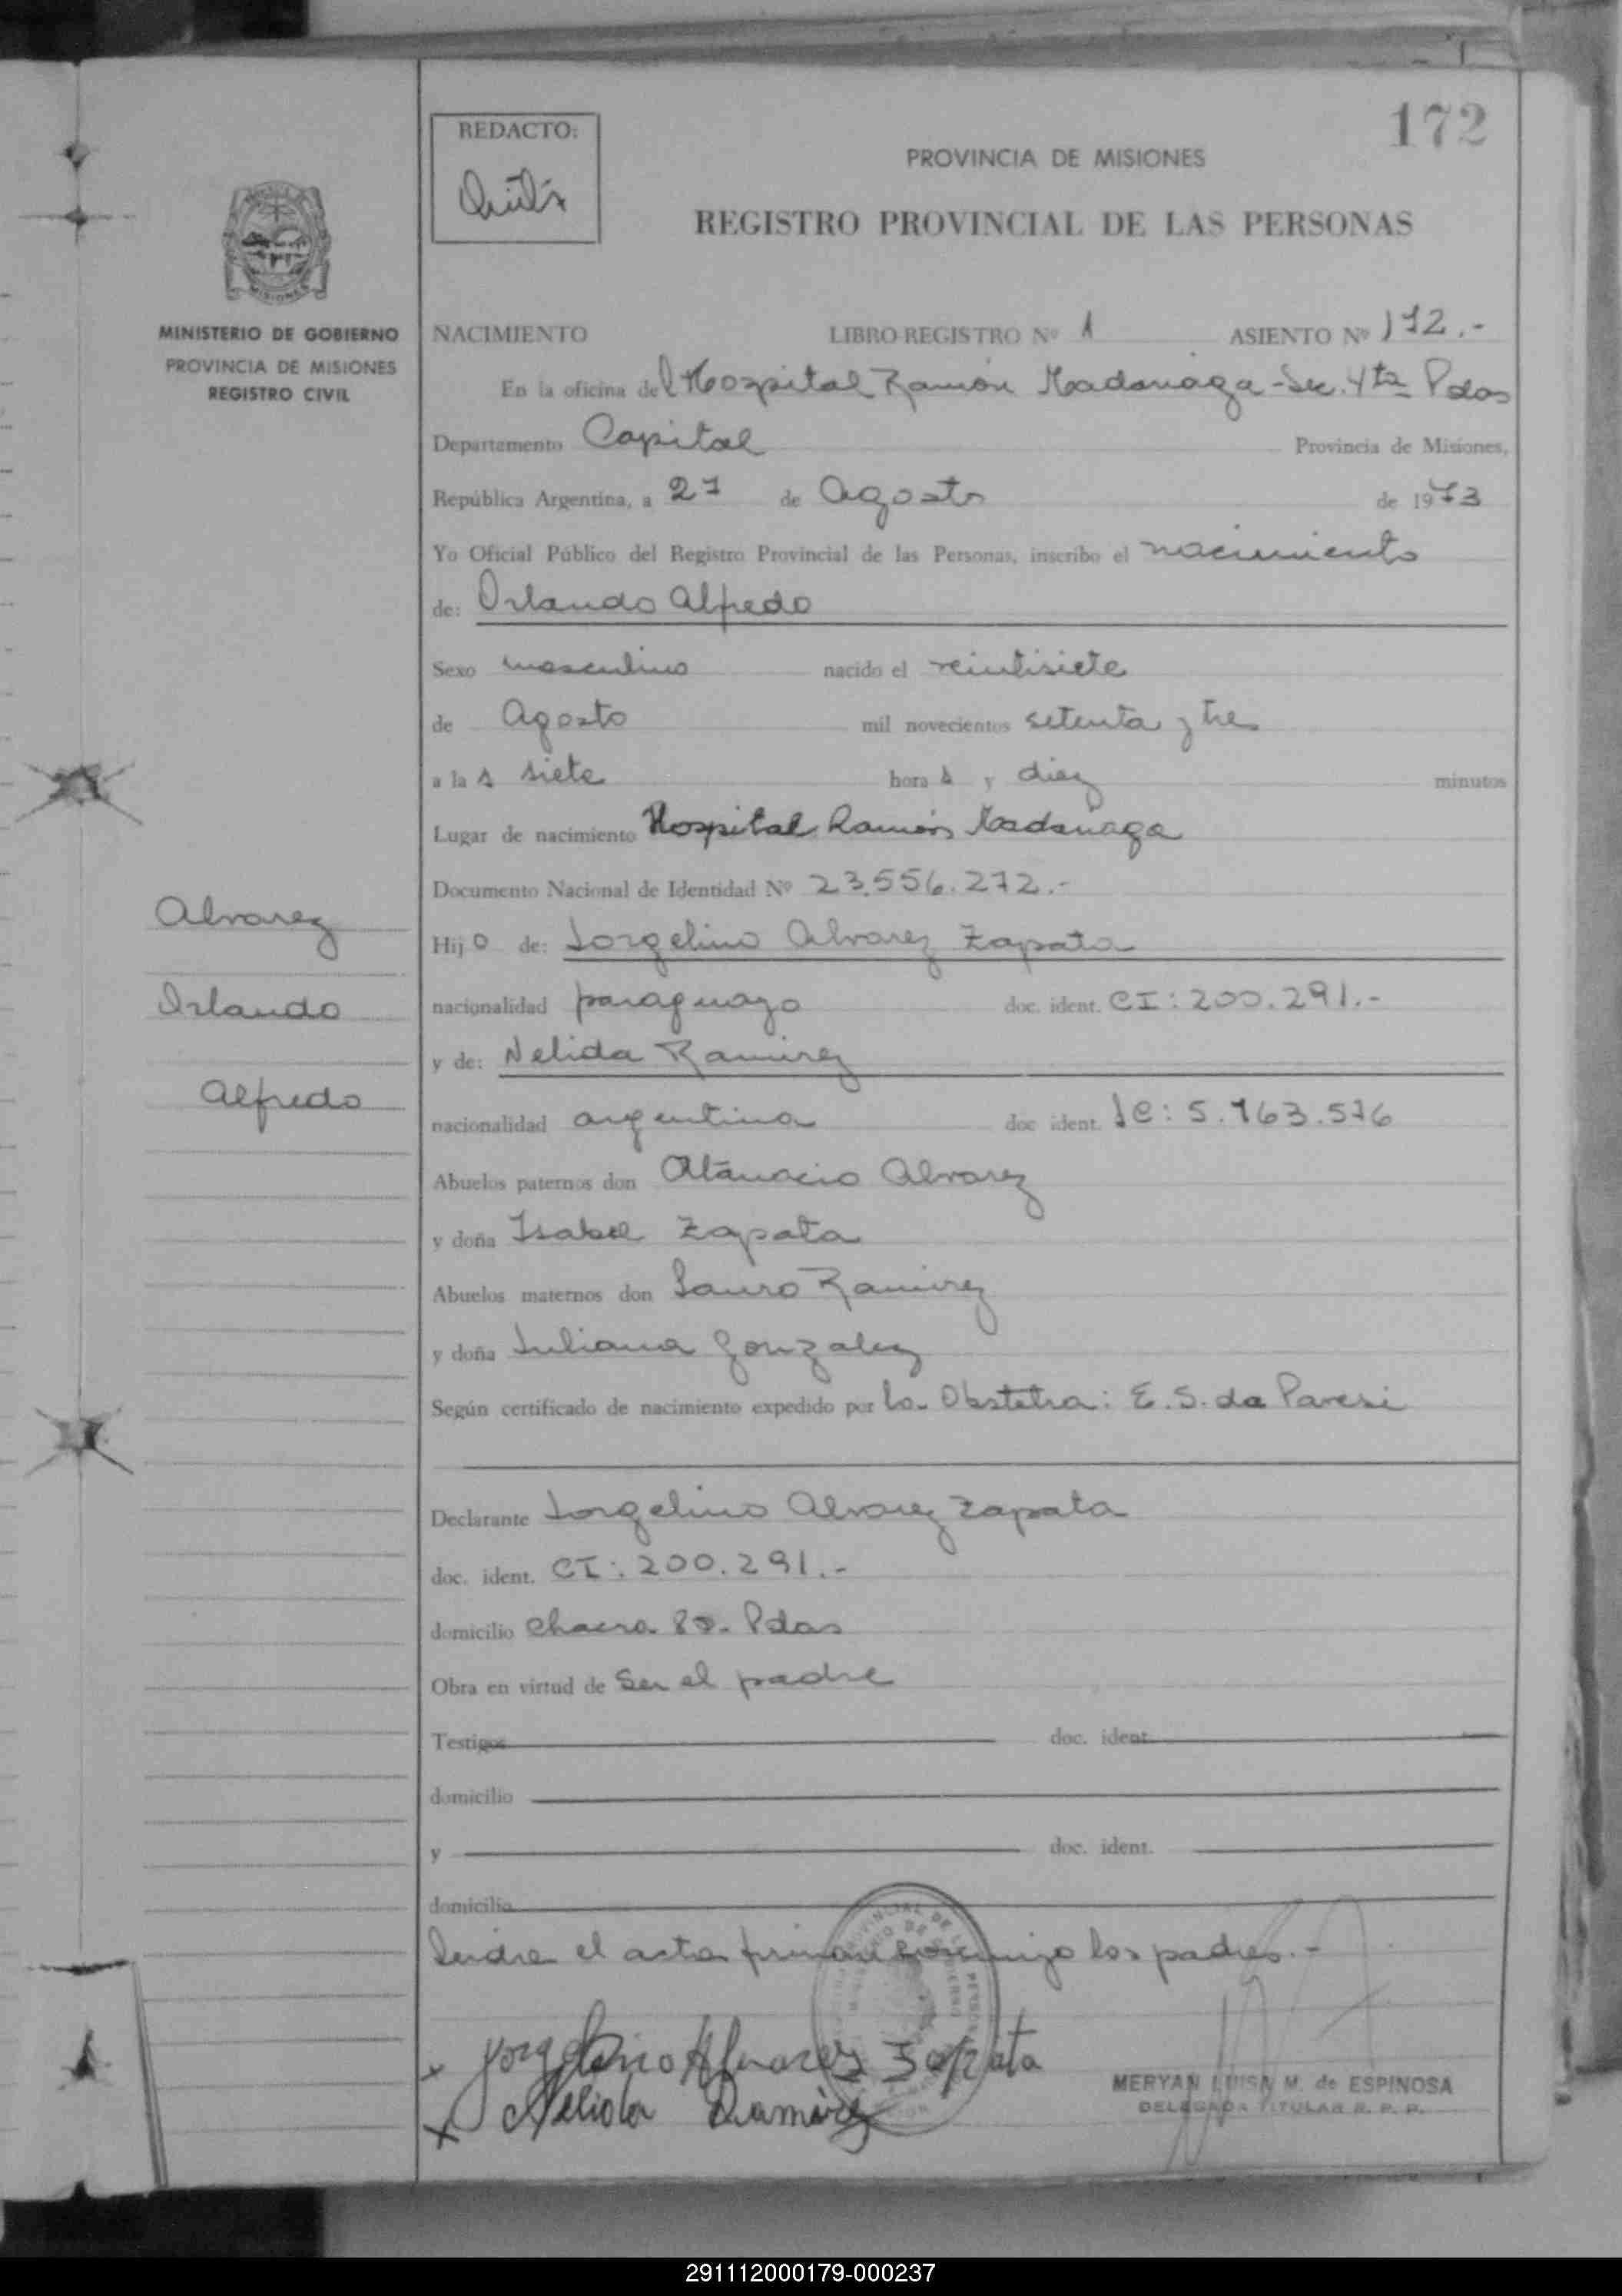 172
REDACTO:
PROVINCIA DE MISIONES
REGISTRO PROVINCIAL DE LAS PERSONAS
MISIONES
MINISTERIO DE GOBIERNO
PROVINCIA DE MISIONES
REGISTRO CIVIL
NACIMIENTO LIBRO-REGISTRO Nº 1 ASIENTO Nº 172.-
En la oficina del Hospital Ramón Madariaga - Sec. 4ta Pdas
Departamento Capital Provincia de Misiones,
República Argentina, a 27 de Agosto de 1973
Yo Oficial Público del Registro Provincial de las Personas, inscribo el nacimiento
de: Orlando Alfredo
Sexo masculino nacido el veintisiete
de Agosto mil novecientos setenta y tre
a las siete horas y diez minutos
Lugar de nacimiento Hospital Ramón Madariaga
Documento Nacional de Identidad Nº 23.556.272.-
Alvarez
Hijo de: Jorgelino Alvarez Zapata
Orlando
nacionalidad paraguayo doc. ident. CI: 200.291.-
y de: Nelida Ramirez
Alfredo
nacionalidad argentina doc ident. LC: 5.763.576
Abuelos paternos don Atanacio Alvarez
y doña Isabel Zapata
Abuelos maternos don Lauro Ramirez
y doña Juliana Gonzalez
Según certificado de nacimiento expedido por la Obstetra: E. S. de Paresi
Declarante Jorgelino Alvarez Zapata
doc. ident. CI: 200.291.-
domicilio Chacra Pdas
Obra en virtud de Ser el padre
Testigos doc. ident.
domicilio
y doc. ident.
domicilio
el acta firman conmigo los padres.-
x Jorgelino Alvarez Zapata
x Nelida Ramirez
MERYAN LUISA M. de ESPINOSA
DELEGADA TITULAR R. P. P.
291112000179-000237